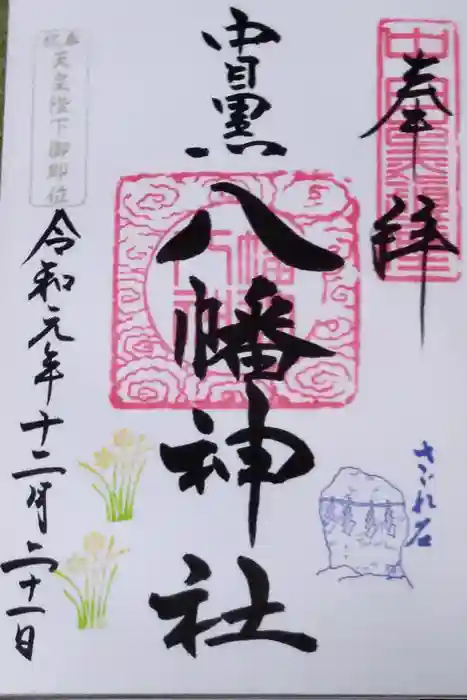 奉拝
中目黒
八幡神社
さざれ石
奉祝
天皇陛下御即位
令和元年十二月二十一日